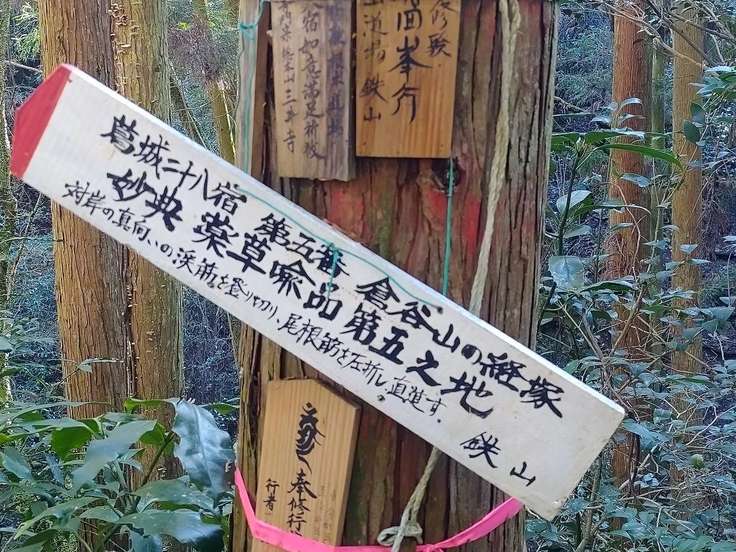 葛城二十八宿 第五番 倉谷山の経塚
妙典 薬草喩品 第五之地
対岸の真向いの涙筋を登り切り、尾根筋を左折し直進す。 鉄山
修験
田峯行
道場 鉄山
宿 如意満足祈攸
三井寺
奉修行
行者